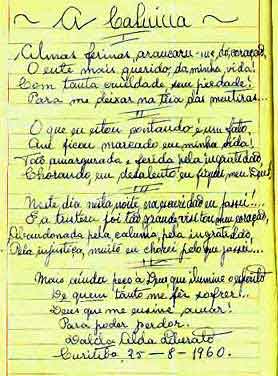 A Calunia
Almas ferinas, arancaru-me do, coração,
O ente mais querido, da minha vida!
Com tanta crueldade sem piedade!
Para me deixar na teia das mentiras...
O que eu estou contando, é um fato,
Que ficou marcado em minha vida!
Tão amargurada e ferida pela ingratidão,
Chorando, em desalento eu fiquei, meu Deus,
Neste dia nesta noite na escuridão eu passei!...
E a tristeza foi tão grande visitou meu coração,
Abandonada pela calunia, pela ingratidão,
Pela injustiça, muito eu chorei pelo que passei...
Mais, ainda peço à Deus que ilumine o espirito
De quem tanto me fez sofrer!..
Deus que me ensine amar!
Para poder perdoar.
Dalda Alda
Curitiba, 25-8-1960.